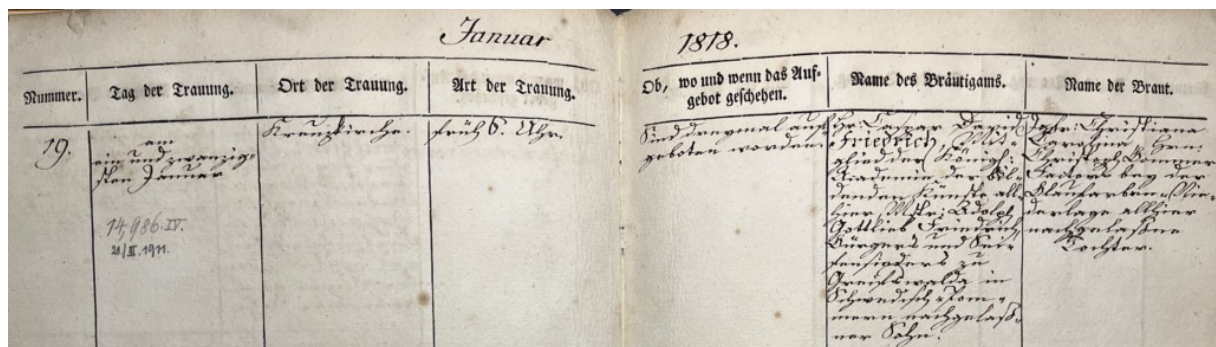 Januar 1818.
Nummer.
Tag der Trauung.
Ort der Trauung.
Art der Trauung.
Ob, wo und wenn das Auf-
gebot geschehen.
Name des Bräutigams.
Name der Braut.
19.
am
ein und zwanzig-
sten Januar
14,986.IV.
21/III.1911.
Kreuzkirche.
früh 6. Uhr.
Sind dreymal auf-
geboten worden.
Hr: Caspar David
Friedrich, Mit-
glied der Königl:
Academie der bil-
denden Künste all-
hier, Mstr: Adolph
Gottlieb Friedrich,
Bürgers und Sei-
fensieders zu
Greifswalde in
Schwedisch-Pom-
mern nachgelaß-
ner Sohn.
Jgfr: Christiana
Carolina, Hrn:
Christoph Bommer
Factors bey der
Blaufarben-Nie-
derlage allhier
nachgelaßne
Tochter.